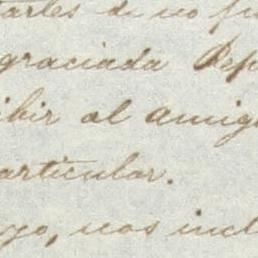 tarles de no
graciada Rep
ibir al amig
articular.
yo, nos incl